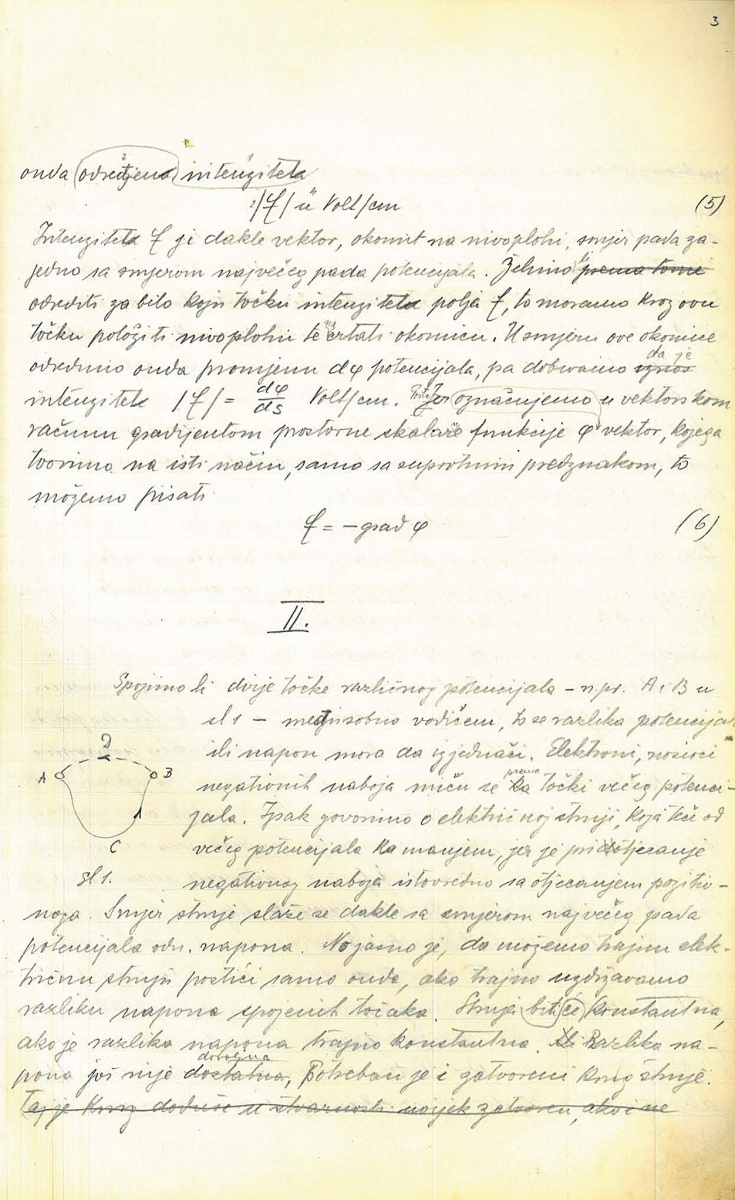 3
onda određena intenziteta
|f| u Volt/cm (5)
Intenziteta f je dakle vektor, okomit na nivoplohi, smjer pada za-
jedno sa smjerom najvećeg pada potencijala. Želimo li prema tome
odrediti za bilo koju točku intenziteta polja f, to moramo kroz ovu
točku položiti nivoplohu te crtati okomicu. U smjeru ove okomice
odredimo onda promjenu dφ potencijala, pa dobivamo da je
intenziteta |f| = dφ/ds Volt/cm. označujemo u vektorskom
računu gradijentom prostorne skalarne funkcije φ vektor, kojega
tvorimo na isti način, samo sa suprotnim predznakom, to
možemo pisati
f = − grad φ (6)
II.
Spojimo li dvije točke različnog potencijala – npr. A i B u
sl 1 – međusobno vodičem, to se razlika potencijala
ili napon mora da izjednači. Elektroni, nosioci
D
A B
C
sl 1.
negativnih naboja miču se prema točki većeg potenci-
jala. Ipak govorimo o električnoj struji, koja teče od
većeg potencijala ka manjem, jer je pridotjecanje
negativnog naboja istovredno sa otjecanjem pozitiv-
noga. Smjer struje slaže se dakle sa smjerom najvećeg pada
potencijala odn. napona. No jasno je, da možemo trajnu elek-
tričnu struju postići samo onda, ako trajno uzdržavamo
razliku napona spojenih točaka. Struja biti će konstantna,
ako je razlika napona trajno konstantna. Razlika na-
pona još nije dostatna, dovoljna Potreban je i zatvoreni krug struje.
Taj je krug doduše u stvarnosti uvijek zatvoren, ako i ne